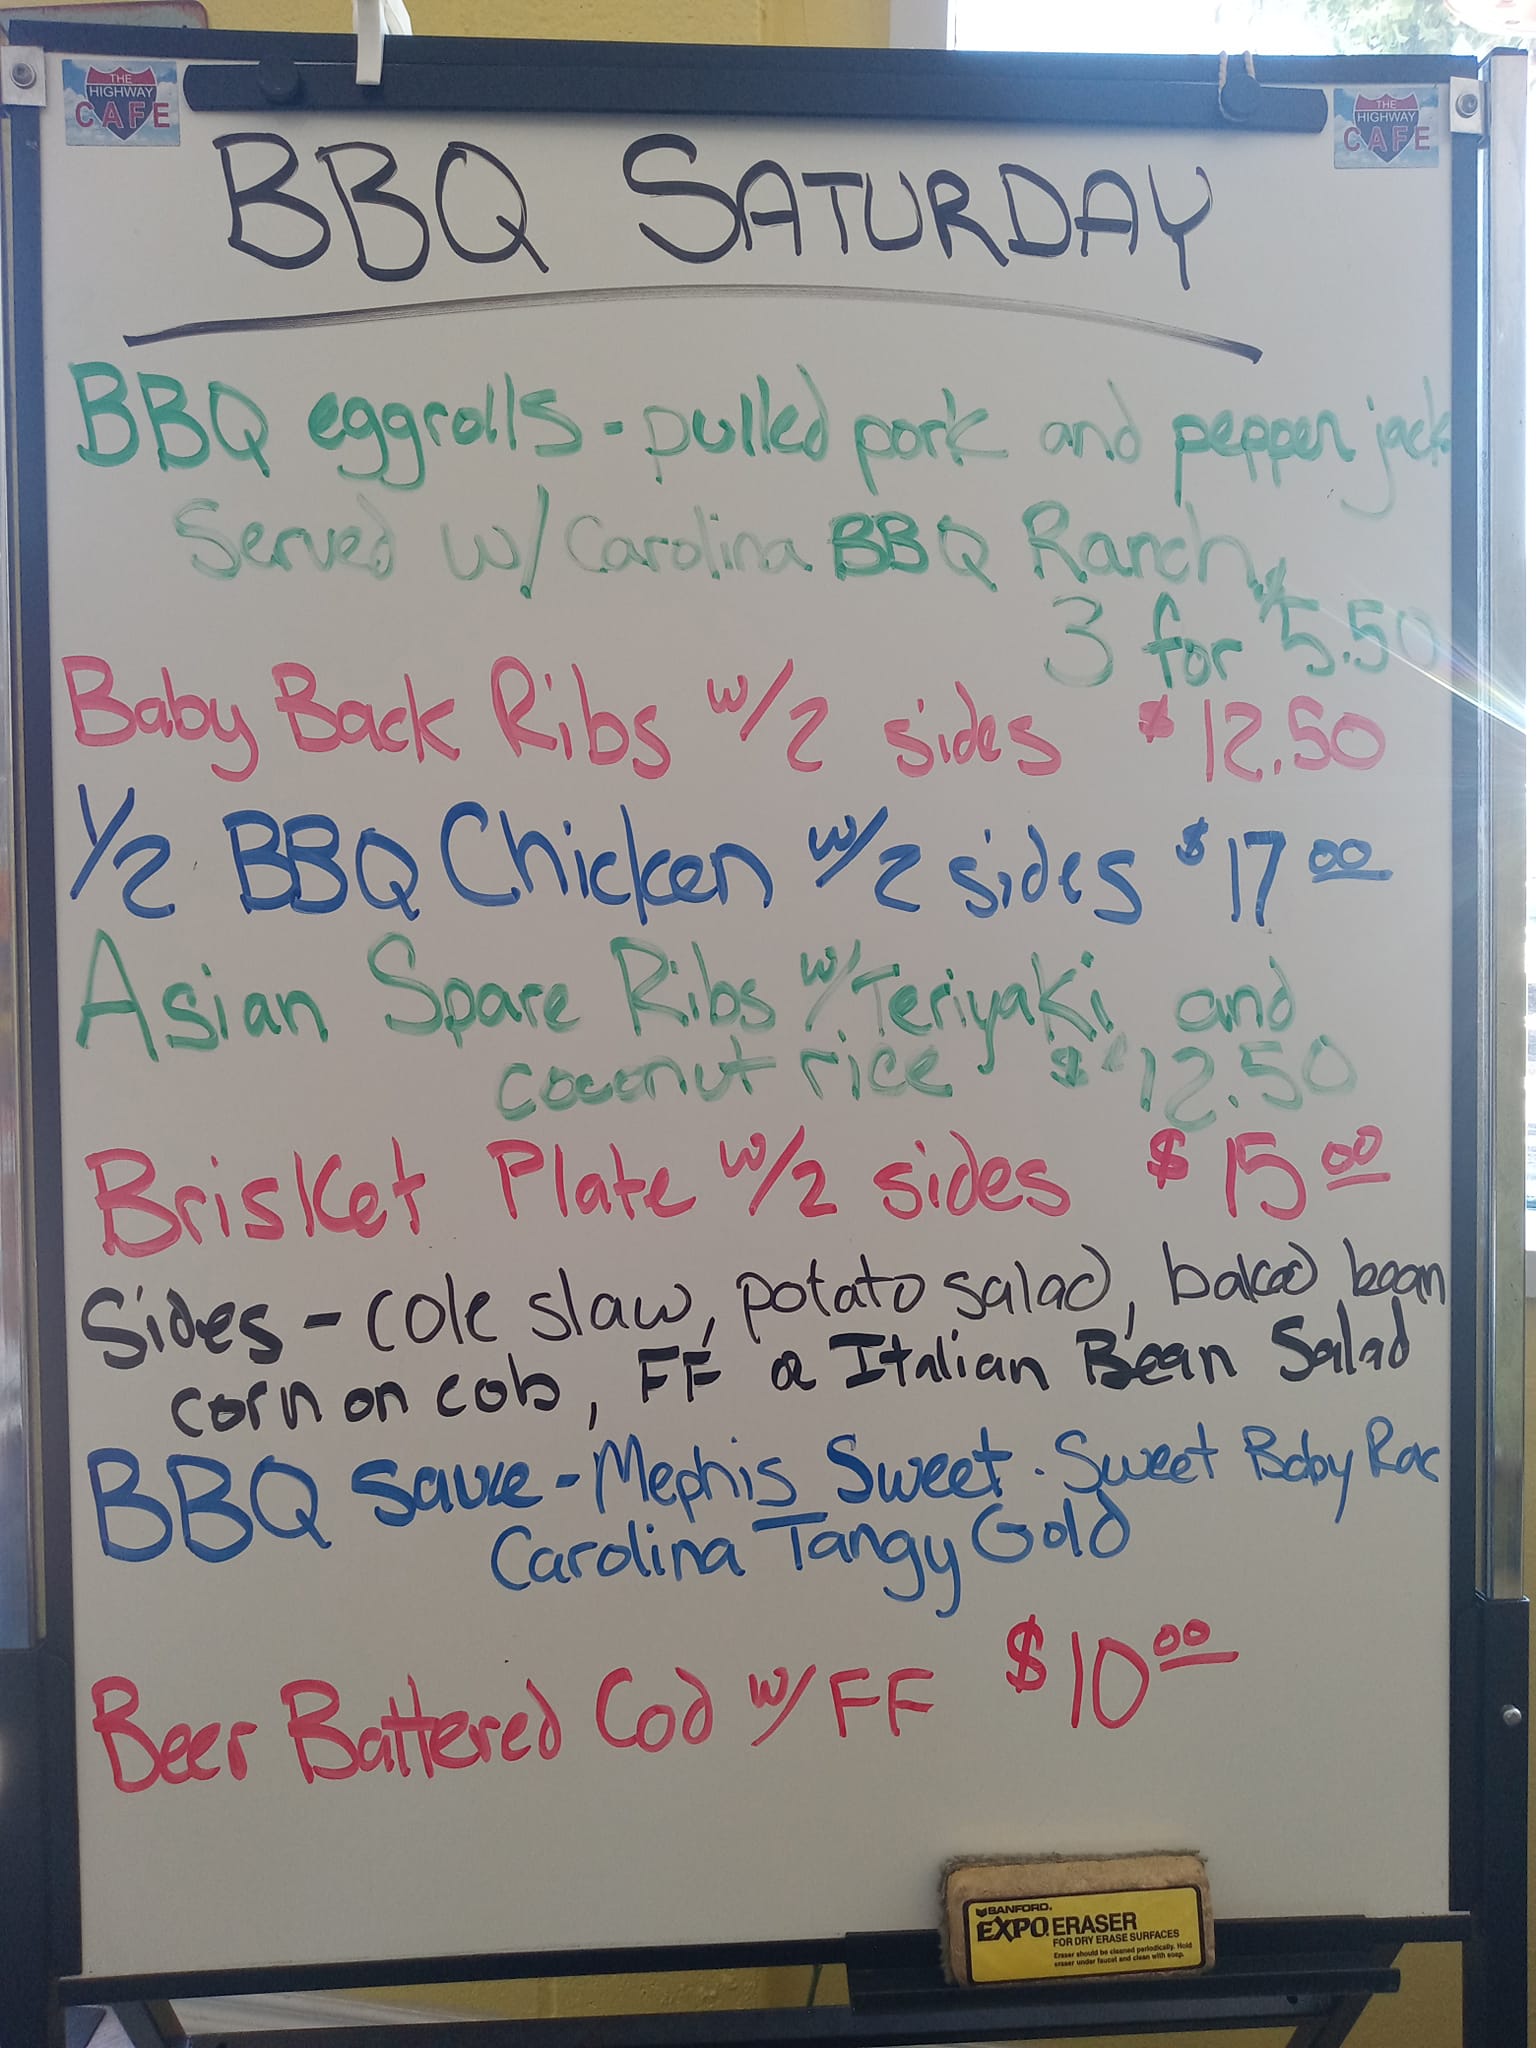 THE HIGHWAY CAFE
THE HIGHWAY CAFE
BBQ SATURDAY
BBQ eggrolls - pulled pork and pepper jack
Served w/ Carolina BBQ Ranch
3 for $5.50
Baby Back Ribs w/2 sides $12.50
1/2 BBQ Chicken w/2 sides $17 00
Asian Spare Ribs w/Teriyaki and
coconut rice $12.50
Brisket Plate w/2 sides $15 00
Sides - cole slaw, potato salad, baked bean
corn on cob, FF or Italian Bean Salad
BBQ Sauce - Mephis Sweet . Sweet Baby Ray
Carolina Tangy Gold
Beer Battered Cod w/ FF $10 00
SANFORD.
EXPO ERASER
FOR DRY ERASE SURFACES
Eraser should be cleaned periodically. Hold
eraser under faucet and clean with soap.